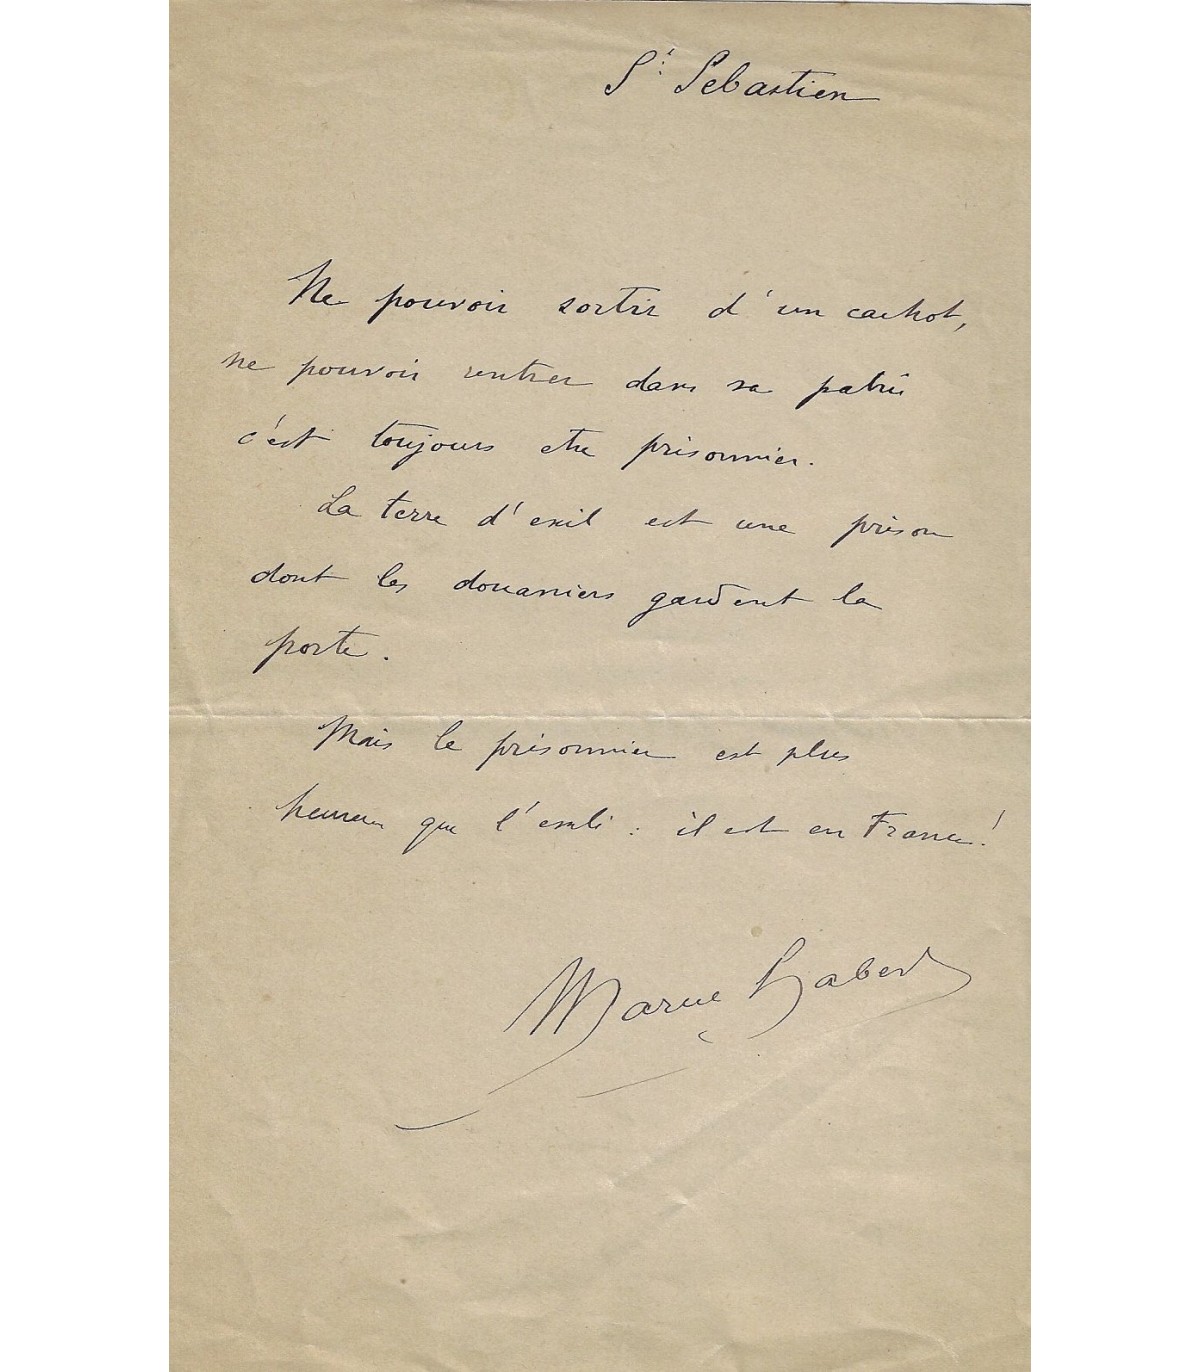 St Sebastien
Ne pouvoir sortir d'un cachot,
ne pouvoir rentrer dans sa patrie
c'est toujours etre prisonnier.
La terre d'exil est une prison
dont les douaniers gardent la
porte.
Mais le prisonnier est plus
heureux que l'exilé : il est en France!
Marcel Habert